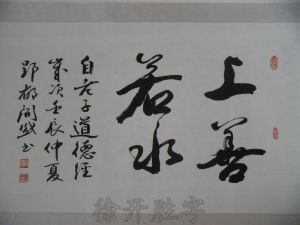 上善
若水
自老子道德经
岁次壬辰仲夏
开胜书
徐开胜字